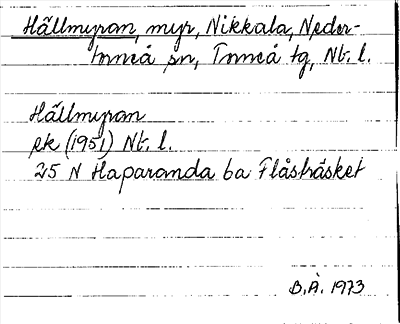 Hällmyran, myr, Nikkala, Neder-
torneå sn, Torneå tg, Nb. l.
Hällmyran
ek (1951) Nb. l.
25 N Haparanda 6a Flåsträsket
B.Å. 1973